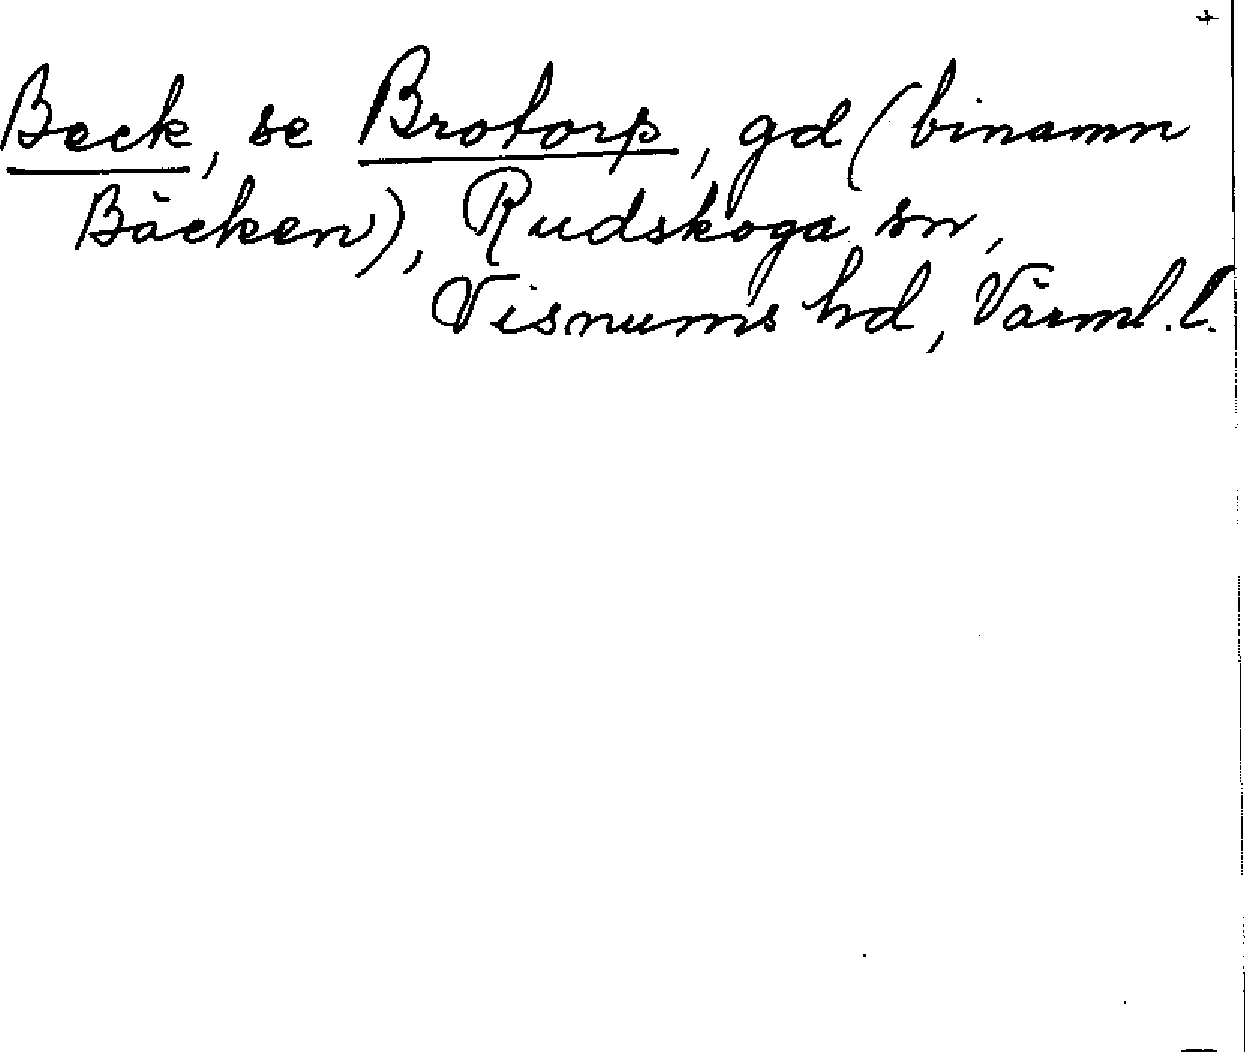 Beck, se Brotorp, gd (binamn
Bäcken), Rudskoga sn,
Visnums hd, Värml. l.